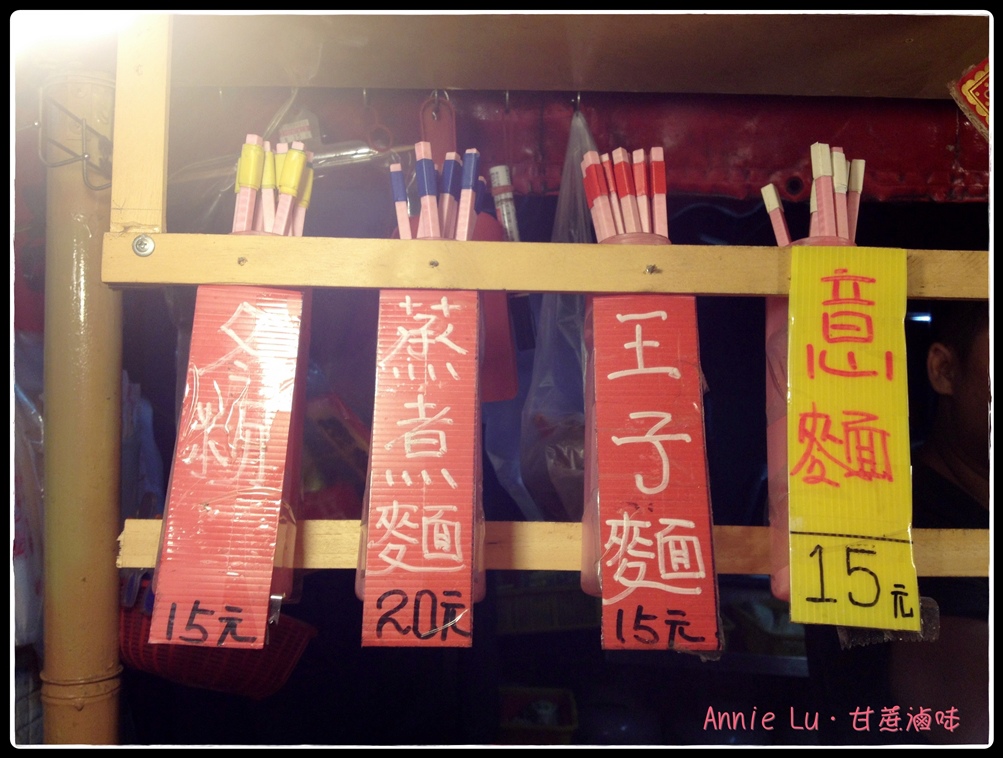 冬粉
15元
蒸煮麵
20元
王子麵
15元
意麵
15元
Annie Lu · 甘蔗滷味